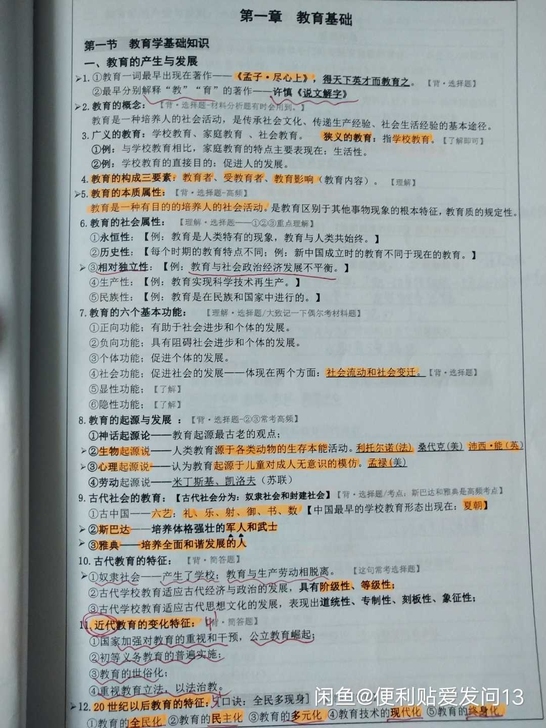 第一章 教育基础
第一节 教育学基础知识
一、教育的产生与发展
1.①教育一词最早出现在著作——《孟子·尽心上》，得天下英才而教育之。【背·选择题】
②最早分别解释“教”“育”的著作——许慎《说文解字》
2.教育的概念：【背·选择题-材料分析题有时会用到。】
教育是一种培养人的社会活动，是传承社会文化、传递生产经验、社会生活经验的基本途径。
3.广义的教育：学校教育、家庭教育、社会教育。 狭义的教育：指学校教育。【了解即可】
①例：与学校教育相比，家庭教育的特点主要表现在：生活性。
②例：学校教育的直接目的：促进人的发展。
4.教育的构成三要素：教育者、受教育者、教育影响（教育内容）。【理解】
5.教育的本质属性：【背·选择题-高频】
教育是一种有目的的培养人的社会活动，是教育区别于其他事物现象的根本特征，教育质的规定性。
6.教育的社会属性：【理解·选择题——①②③重点理解】
①永恒性：【例：教育是人类特有的现象，教育与人类共始终。】
②历史性：【每个时期的教育特点不同；例：新中国成立时的教育不同于现在的教育。】
③相对独立性：【例：教育与社会政治经济发展不平衡。】
④生产性：【例：教育实现科学技术再生产。】
⑤民族性：【例：教育是在民族和国家中进行的。】
7.教育的六个基本功能：【理解·选择题/大致记一下偶尔考材料题】
①正向功能：有助于社会进步和个体的发展。
②负向功能：具有阻碍社会进步和个体的发展。
③个体功能：促进个体的发展。
④社会功能：促进社会的发展——体现在两个方面：社会流动和社会变迁。【背·选择题】
⑤显性功能：【了解】
⑥隐性功能：【了解】
8.教育的起源与发展：【背·选择题-②③常考高频】
①神话起源论——教育起源最古老的观点；
②生物起源说——人类教育源于各类动物的生存本能活动。利托尔诺(法) 桑代克(美) 沛西·能(英)
③心理起源说——认为教育起源于儿童对成人无意识的模仿。孟禄(美)
④劳动起源说——米丁斯基、凯洛夫（苏联）
9.古代社会的教育：【古代社会分为：奴隶社会和封建社会】【背·选择题/考点：斯巴达和雅典是高频考点】
①古中国——六艺：礼、乐、射、御、书、数【中国最早的学校教育形态出现在：夏朝】
②斯巴达——培养体格强壮的军人和武士
③雅典——培养全面和谐发展的人
10.古代教育的特征：【背·简答题】
①奴隶社会——产生了学校；教育与生产劳动相脱离。【这句常考选择题】
②古代学校教育适应古代经济与政治的发展，具有阶级性、等级性；
③古代学校教育适应古代思想文化的发展，表现出道统性、专制性、刻板性、象征性；
11.近代教育的变化特征：【背·简答题】
①国家加强对教育的重视和干预，公立教育崛起；
②初等义务教育的普遍实施；
③教育的世俗化；
④重视教育立法，以法治教。
12.20世纪以后教育的特征：【口诀：全民多现身】
①教育的全民化 ②教育的民主化 ③教育的多元化 ④教育技术的现代化 ⑤教育的终身化。
闲鱼@便利贴爱发问13